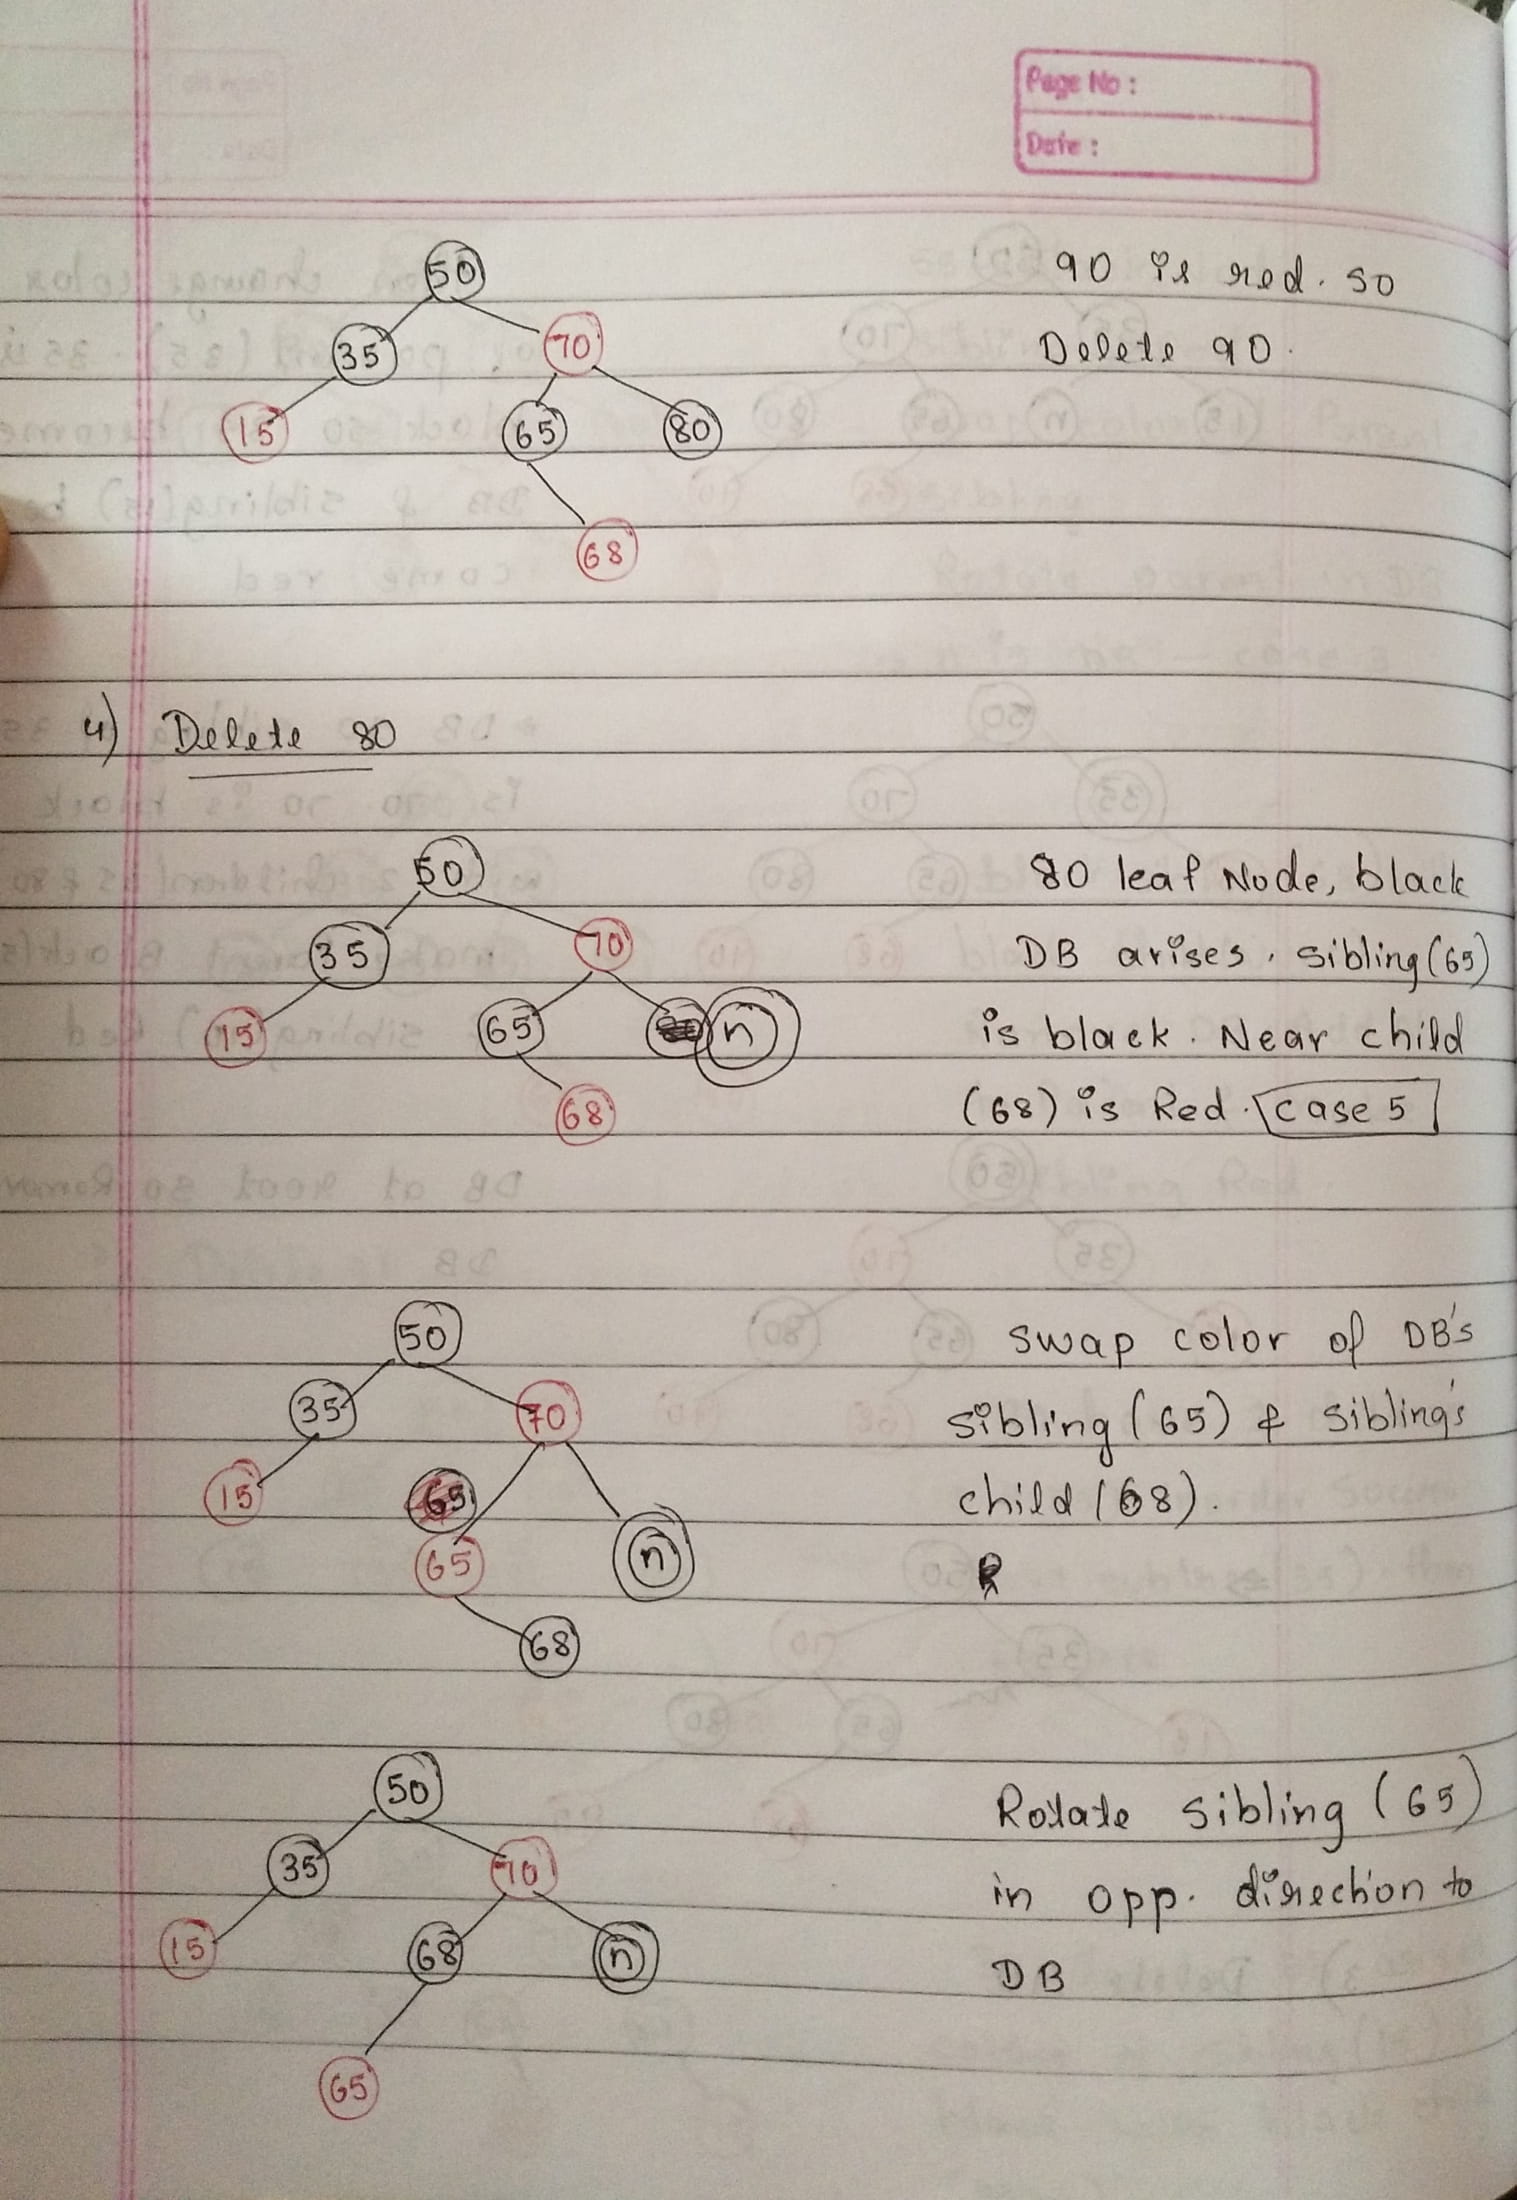 Page No :
Date :
50
35
70
15
65
80
68
90 is red. so
Delete 90.
4) Delete 80
50
35
70
15
65
n
68
80 leaf Node, black
DB arises, sibling (65)
is black. Near child
(68) is Red. case 5
50
35
70
15
65
65
n
68
swap color of DB's
sibling (65) & sibling's
child (68).
50
35
70
15
68
n
65
Rotate sibling (65)
in opp. direction to
DB